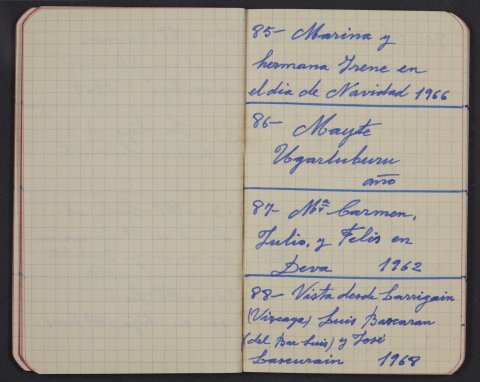 85- Marina y
hermana Irene en
el dia de Navidad 1966
86- Mayte
Ugarluburu
año
87- Mª Carmen,
Julio, y Felis en
Deva 1962
88- Vista desde Larrigain
(Vizcaya) Luis Bascaran
(del Bar Luis) y José
Lascurain 1968